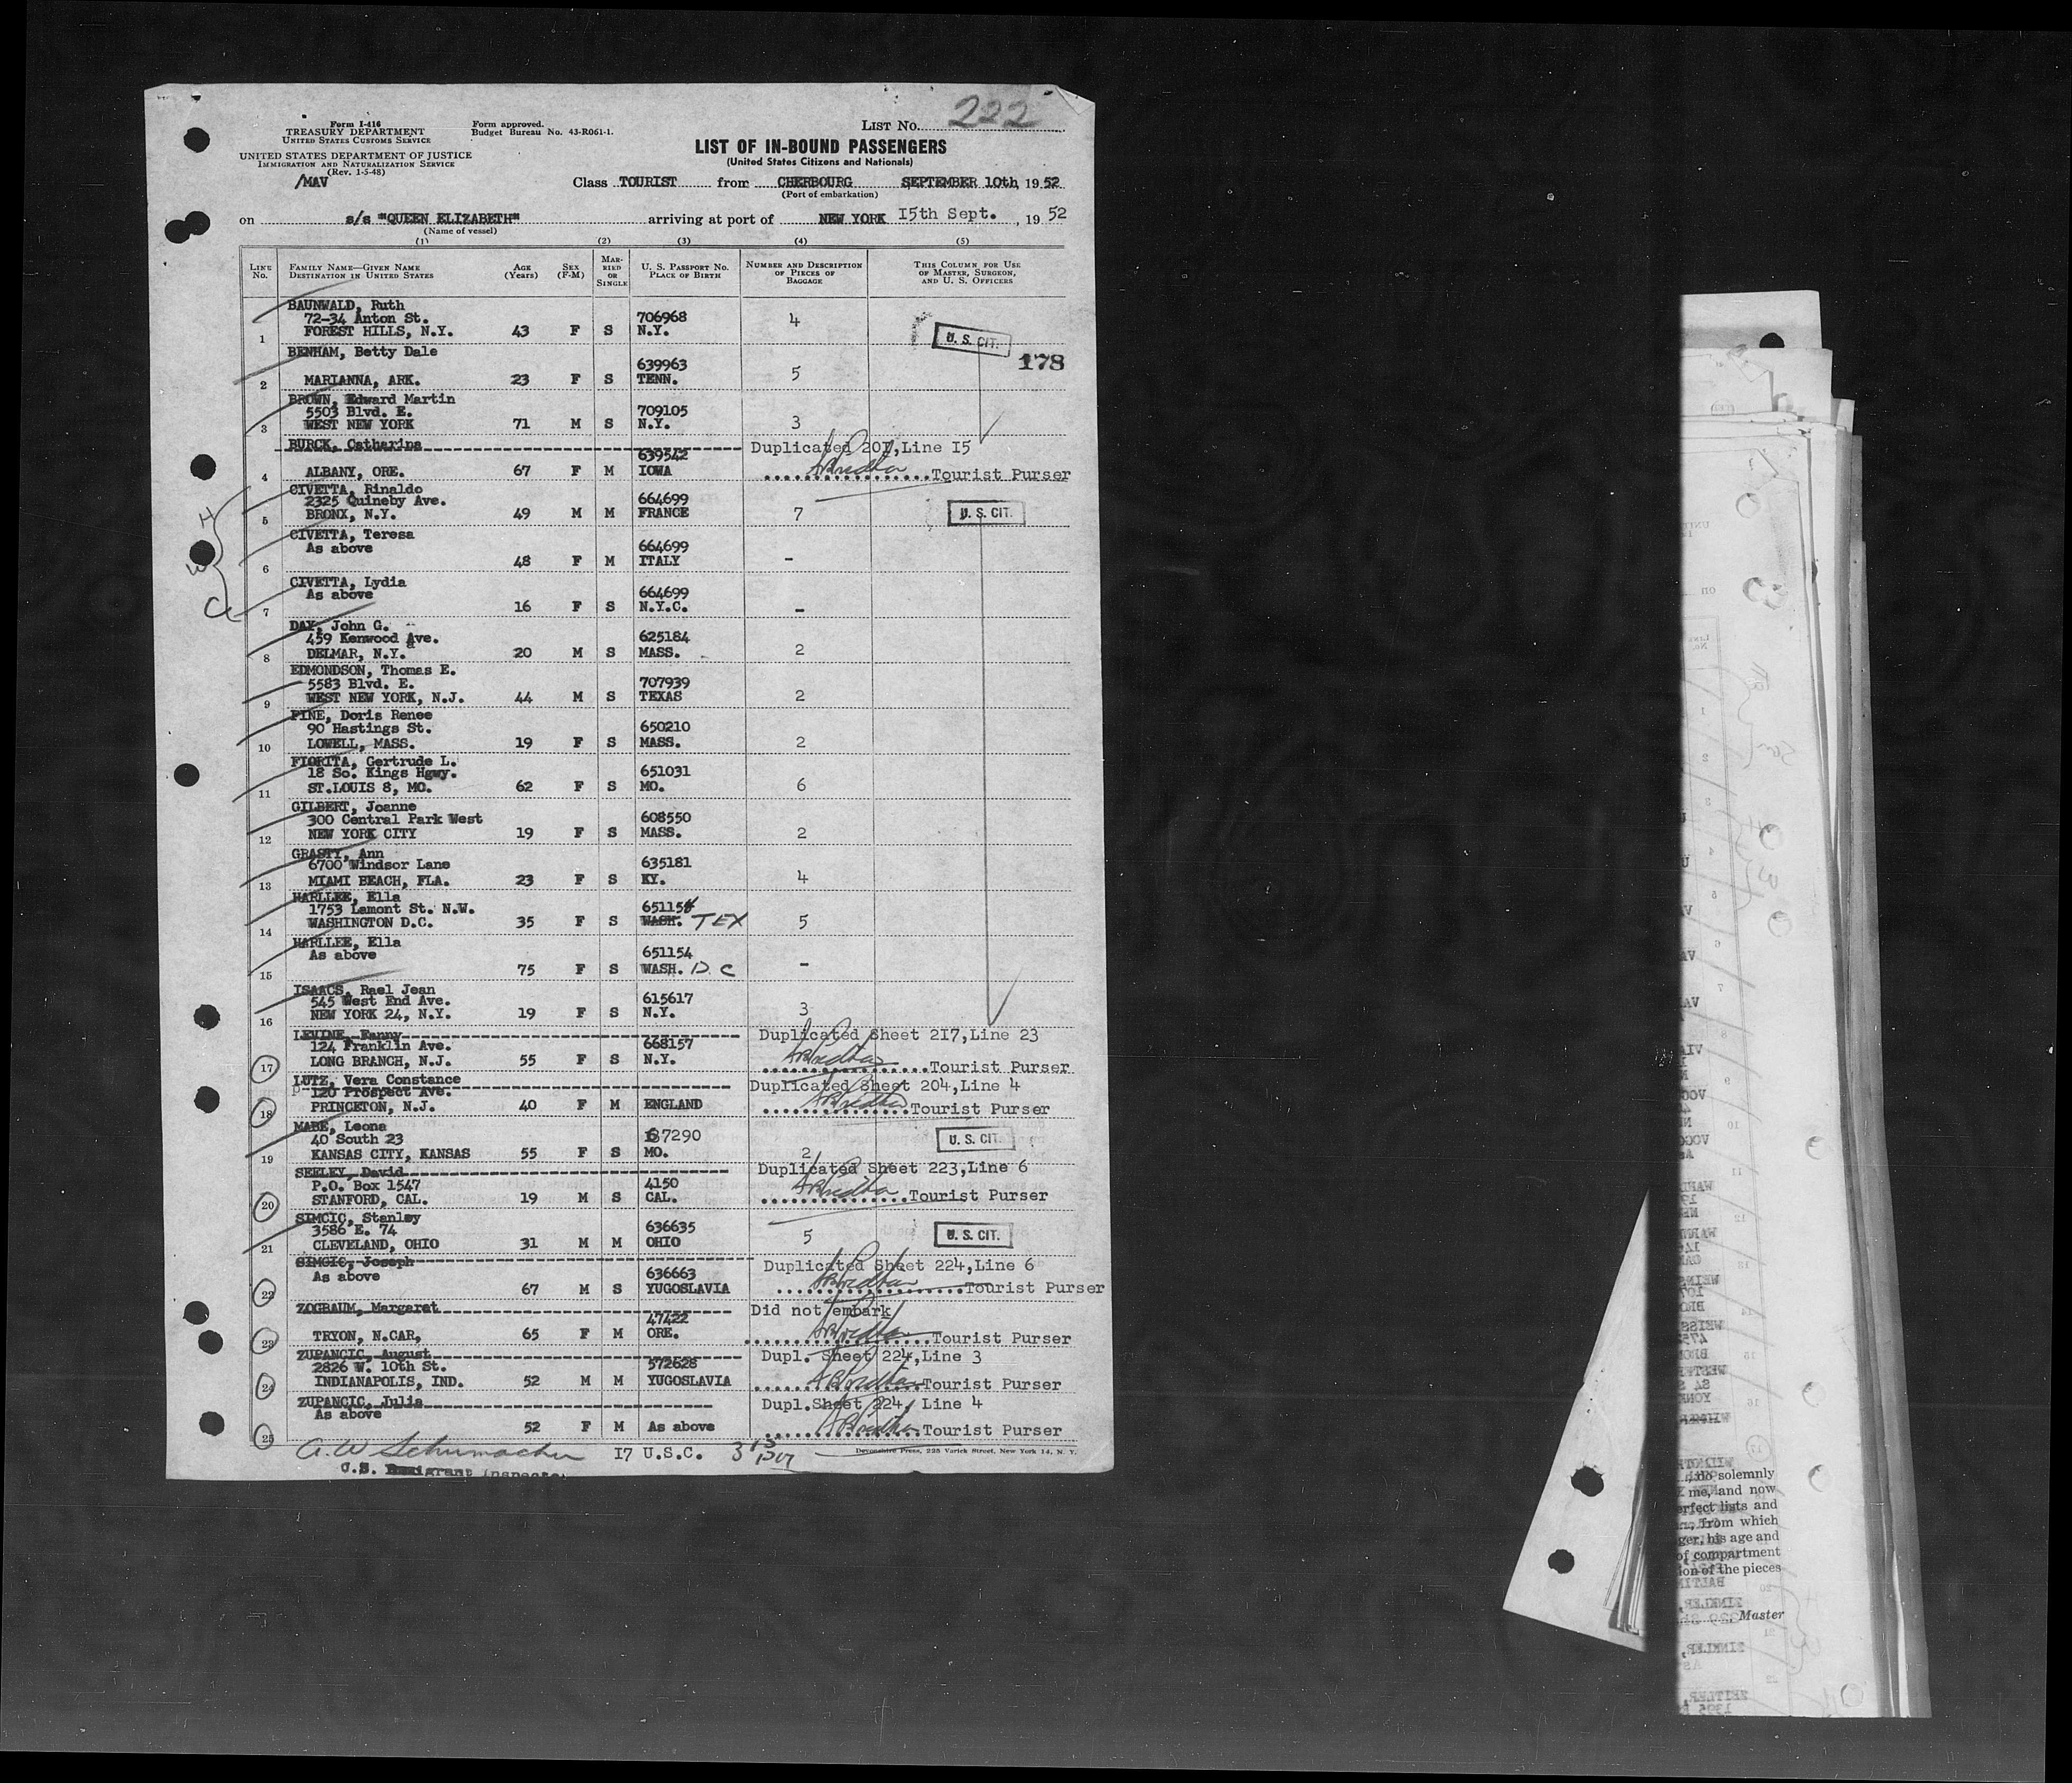 Form I-416
TREASURY DEPARTMENT
UNITED STATES CUSTOMS SERVICE
Form approved.
Budget Bureau No. 43-R061-1.
LIST NO. 222
UNITED STATES DEPARTMENT OF JUSTICE
IMMIGRATION AND NATURALIZATION SERVICE
(Rev. 1-5-48)
/MAV
LIST OF IN-BOUND PASSENGERS
(United States Citizens and Nationals)
Class TOURIST from CHERBOURG SEPTEMBER 10th, 1952
(Port of embarkation)
on s/s "QUEEN ELIZABETH" arriving at port of NEW YORK 15th Sept., 1952
(Name of vessel)
(1) (2) (3) (4) (5)
LINE NO. FAMILY NAME—GIVEN NAME DESTINATION IN UNITED STATES AGE (YEARS) SEX (F-M) MARRIED OR SINGLE U. S. PASSPORT NO. PLACE OF BIRTH NUMBER AND DESCRIPTION OF PIECES OF BAGGAGE THIS COLUMN FOR USE OF MASTER, SURGEON, AND U. S. OFFICERS
BAUNWALD, Ruth
72-34 Anton St. 706968 4
1 FOREST HILLS, N.Y. 43 F S N.Y. U. S. CIT.
BENHAM, Betty Dale 178
639963 5
2 MARIANNA, ARK. 23 F S TENN.
BROWN, Edward Martin
5503 Blvd. E. 709105
3 WEST NEW YORK 71 M S N.Y. 3
BURCK, Catharina Duplicated 201, Line 15
639542
4 ALBANY, ORE. 67 F M IOWA Tourist Purser
CIVETTA, Rinaldo
2325 Quineby Ave. 664699
5 BRONX, N.Y. 49 M M FRANCE 7 U. S. CIT.
CIVETTA, Teresa
As above 664699
6 48 F M ITALY -
CIVETTA, Lydia
As above 664699
7 16 F S N.Y.C. -
DAY, John G.
459 Kenwood Ave. 625184
8 DELMAR, N.Y. 20 M S MASS. 2
EDMONDSON, Thomas E.
5583 Blvd. E. 707939
9 WEST NEW YORK, N.J. 44 M S TEXAS 2
FINE, Doris Renee
90 Hastings St. 650210
10 LOWELL, MASS. 19 F S MASS. 2
FIORITA, Gertrude L.
18 So. Kings Hgwy. 651031
11 ST.LOUIS 8, MO. 62 F S MO. 6
GILBERT, Joanne
300 Central Park West 608550
12 NEW YORK CITY 19 F S MASS. 2
GRASTY, Ann
6700 Windsor Lane 635181
13 MIAMI BEACH, FLA. 23 F S KY. 4
HARLLEE, Ella
1753 Lamont St. N.W. 651154
14 WASHINGTON D.C. 35 F S WASH. TEX 5
HARLLEE, Ella
As above 651154
15 75 F S WASH. D.C -
ISAACS, Rael Jean
545 West End Ave. 615617
16 NEW YORK 24, N.Y. 19 F S N.Y. 3
LEVINE, Fanny Duplicated Sheet 217, Line 23
124 Franklin Ave. 668157
17 LONG BRANCH, N.J. 55 F S N.Y. Tourist Purser
LUTZ, Vera Constance Duplicated Sheet 204, Line 4
120 Prospect Ave.
18 PRINCETON, N.J. 40 F M ENGLAND Tourist Purser
MABE, Leona
40 South 23 U. S. CIT.
19 KANSAS CITY, KANSAS 55 F S MO. 2
SEELEY, David Duplicated Sheet 223, Line 6
P.O. Box 1547 4150
20 STANFORD, CAL. 19 M S CAL. Tourist Purser
SIMCIC, Stanley
3586 E. 74 636635 5
21 CLEVELAND, OHIO 31 M M OHIO U. S. CIT.
SIMCIC, Joseph Duplicated Sheet 224, Line 6
As above 636663
22 67 M S YUGOSLAVIA Tourist Purser
ZOGBAUM, Margaret Did not embark
47422
23 TRYON, N.CAR, 65 F M ORE. Tourist Purser
ZUPANCIC, August Dupl. Sheet 224, Line 3
2826 W. 10th St. 572628
24 INDIANAPOLIS, IND. 52 M M YUGOSLAVIA Tourist Purser
ZUPANCIC, Julia Dupl. Sheet 224, Line 4
As above
25 52 F M As above Tourist Purser
A.W Schumacher 17 U.S.C.
Devonshire Press, 225 Varick Street, New York 14, N. Y.
U.S. Immigrant Inspector
do solemnly
me, and now
erfect lists and
from which
ger, his age and
of compartment
ion of the pieces
Master